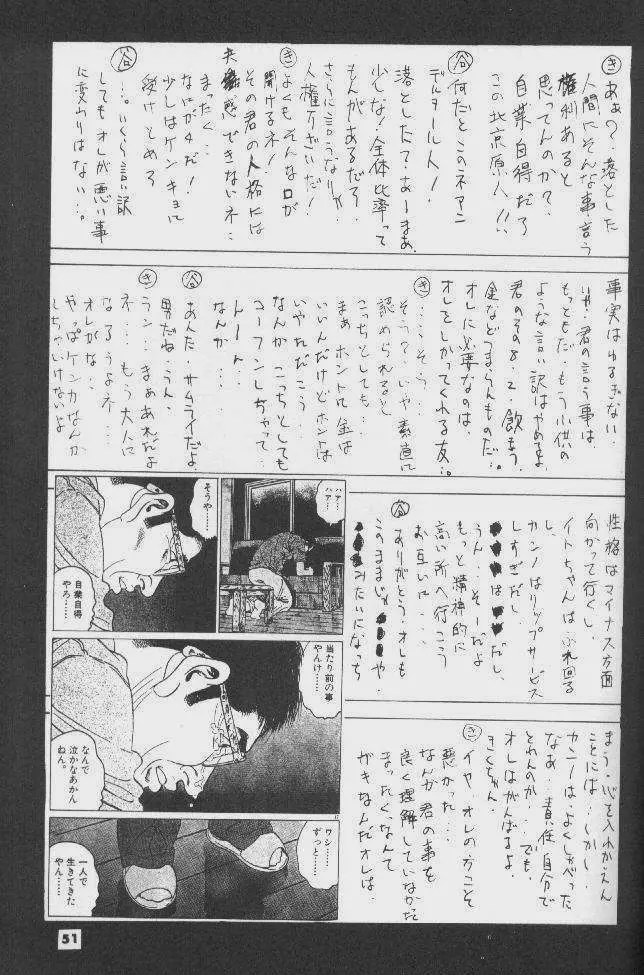 き あぁの?、落とした
人間にそんな事言う
権利あると
思ってんのか?、
自業自得だろ
この北京原人!!
谷 何だとこのネアン
デルタール人!、
落としたて、あーまあ、
少しな!全体比率って
もんがあるだろ、
さらに言うなりゃ、
人権ようごだ!
き よくもそんな口が
開けるネ!
その君の人格には
共感できないネ‥
まったく‥
なにが4だ!
少しはケンキョに
受けとめろ
谷 …。いくら言い訳
してもオレが悪い事
に変わりはない…。
事実はゆるぎない.
いや、君の言う事は
もっともだ、もう小供の
ような言い訳はやめるよ
君のその8.2、飲もう、
金などつまらんものだ。
オレに必要なのは、
オレをしかってくれる友…。
き …こそら…
そう?、いや素直に
認められると
こっちとしても、
まぁ ホント10金は
いいんだけどホントは
いやただこう…
なんかこっちとしても
コーフンしちゃって…
トーン…
なんか…
谷 あんた、サムライだよ
男だね、うん、
き ラン…まぁあれだよ
ネ…、もう大人に
なろうよネ…、
オレがな…
やっぱケンカなんか
しちゃいけないよ
性格はマイナス方面
向かって行くし、
イトちゃんはふれ回る
し、
カンノはリップサービス
しすぎだし、
は だし、
うん…そーだよ
もっと精神的に
高い所へ行こう
お互いに…
谷 ありがとう、オレも
このままじゃ や、
みたいになっち
まう、心を入れかえん
ことには…しかし、
カンノは、よくしゃべった
なあ…責任自分で
とれんのか…、でも、
オレはがんばるよ
きくちゃん、
き イヤ、オレの方こそ
悪かった…
なんか君の事を
良く理解していなかた
まったく、なんて
ガキなんだオレは、
ハァ…
ハァ…
そうや……
自業自得
やろ……
当たり前の事
やんけ……
なんで
泣かなあかん
ねん。
ワシ……
ずっと……
一人で
生きてきた
やん……
51